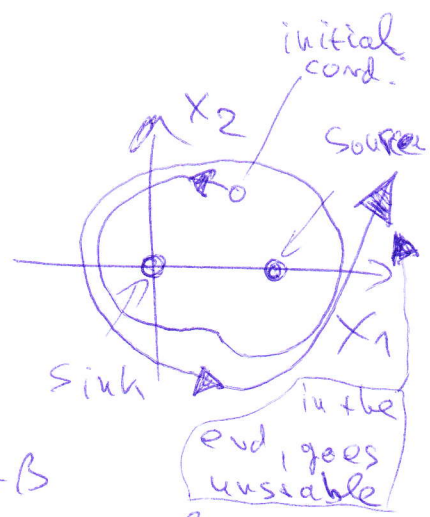 initial
cond.
X2
Source
X1
Sink
in the
end, goes
unstable
-B